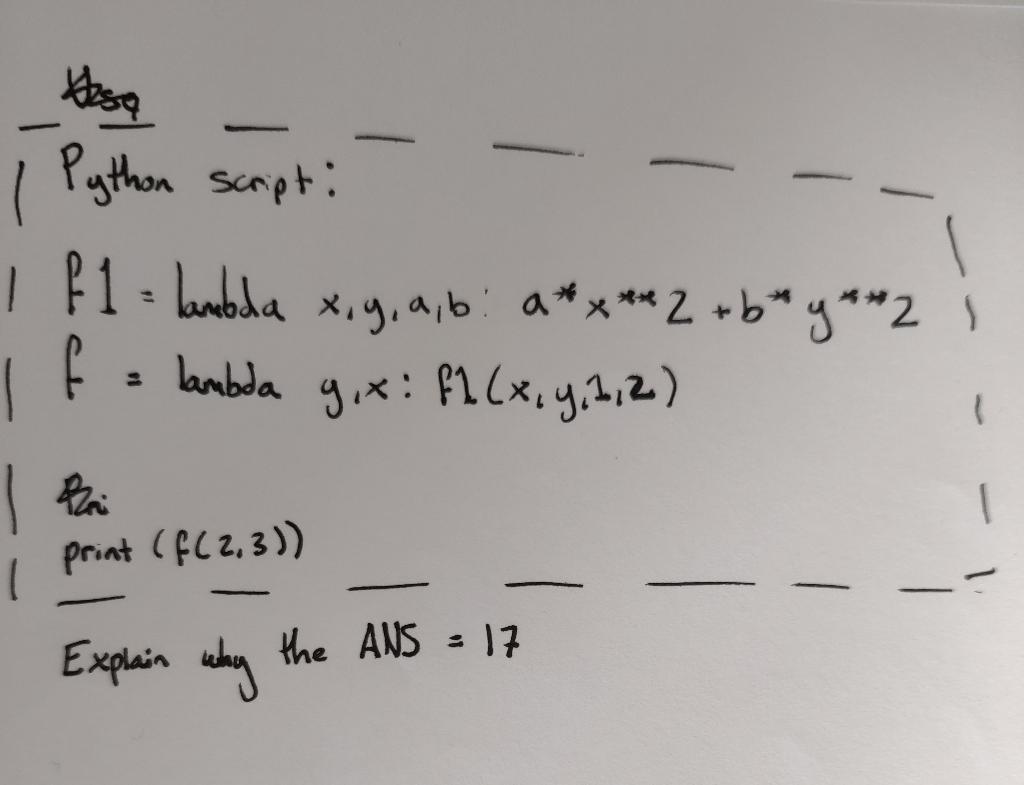 Python script:
f1 = lambda x,y,a,b: a*x**2 + b*y**2
f = lambda y,x: f1(x,y,1,2)
print (f(2,3))
Explain why the ANS = 17